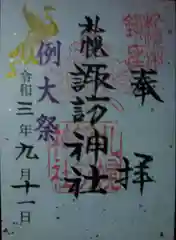 奉拝
札幌
諏訪神社
例大祭
令和三年九月十一日